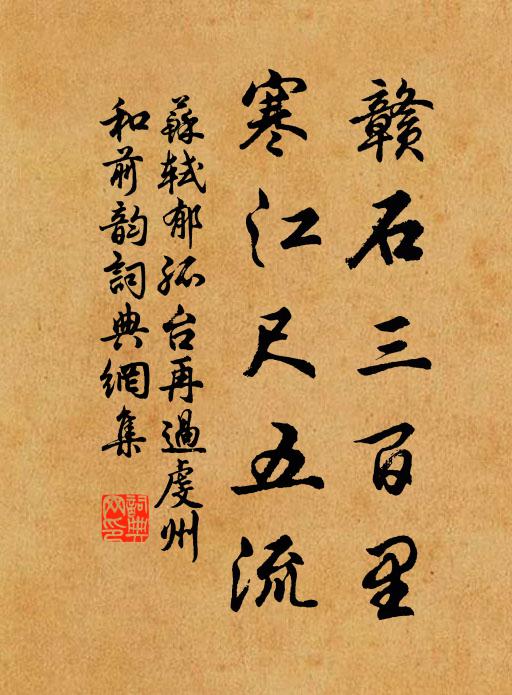 赣石三百里
寒江尺五流
蘇軾郁孤台再過虔州
和前韵詞典網集
詞典
网印